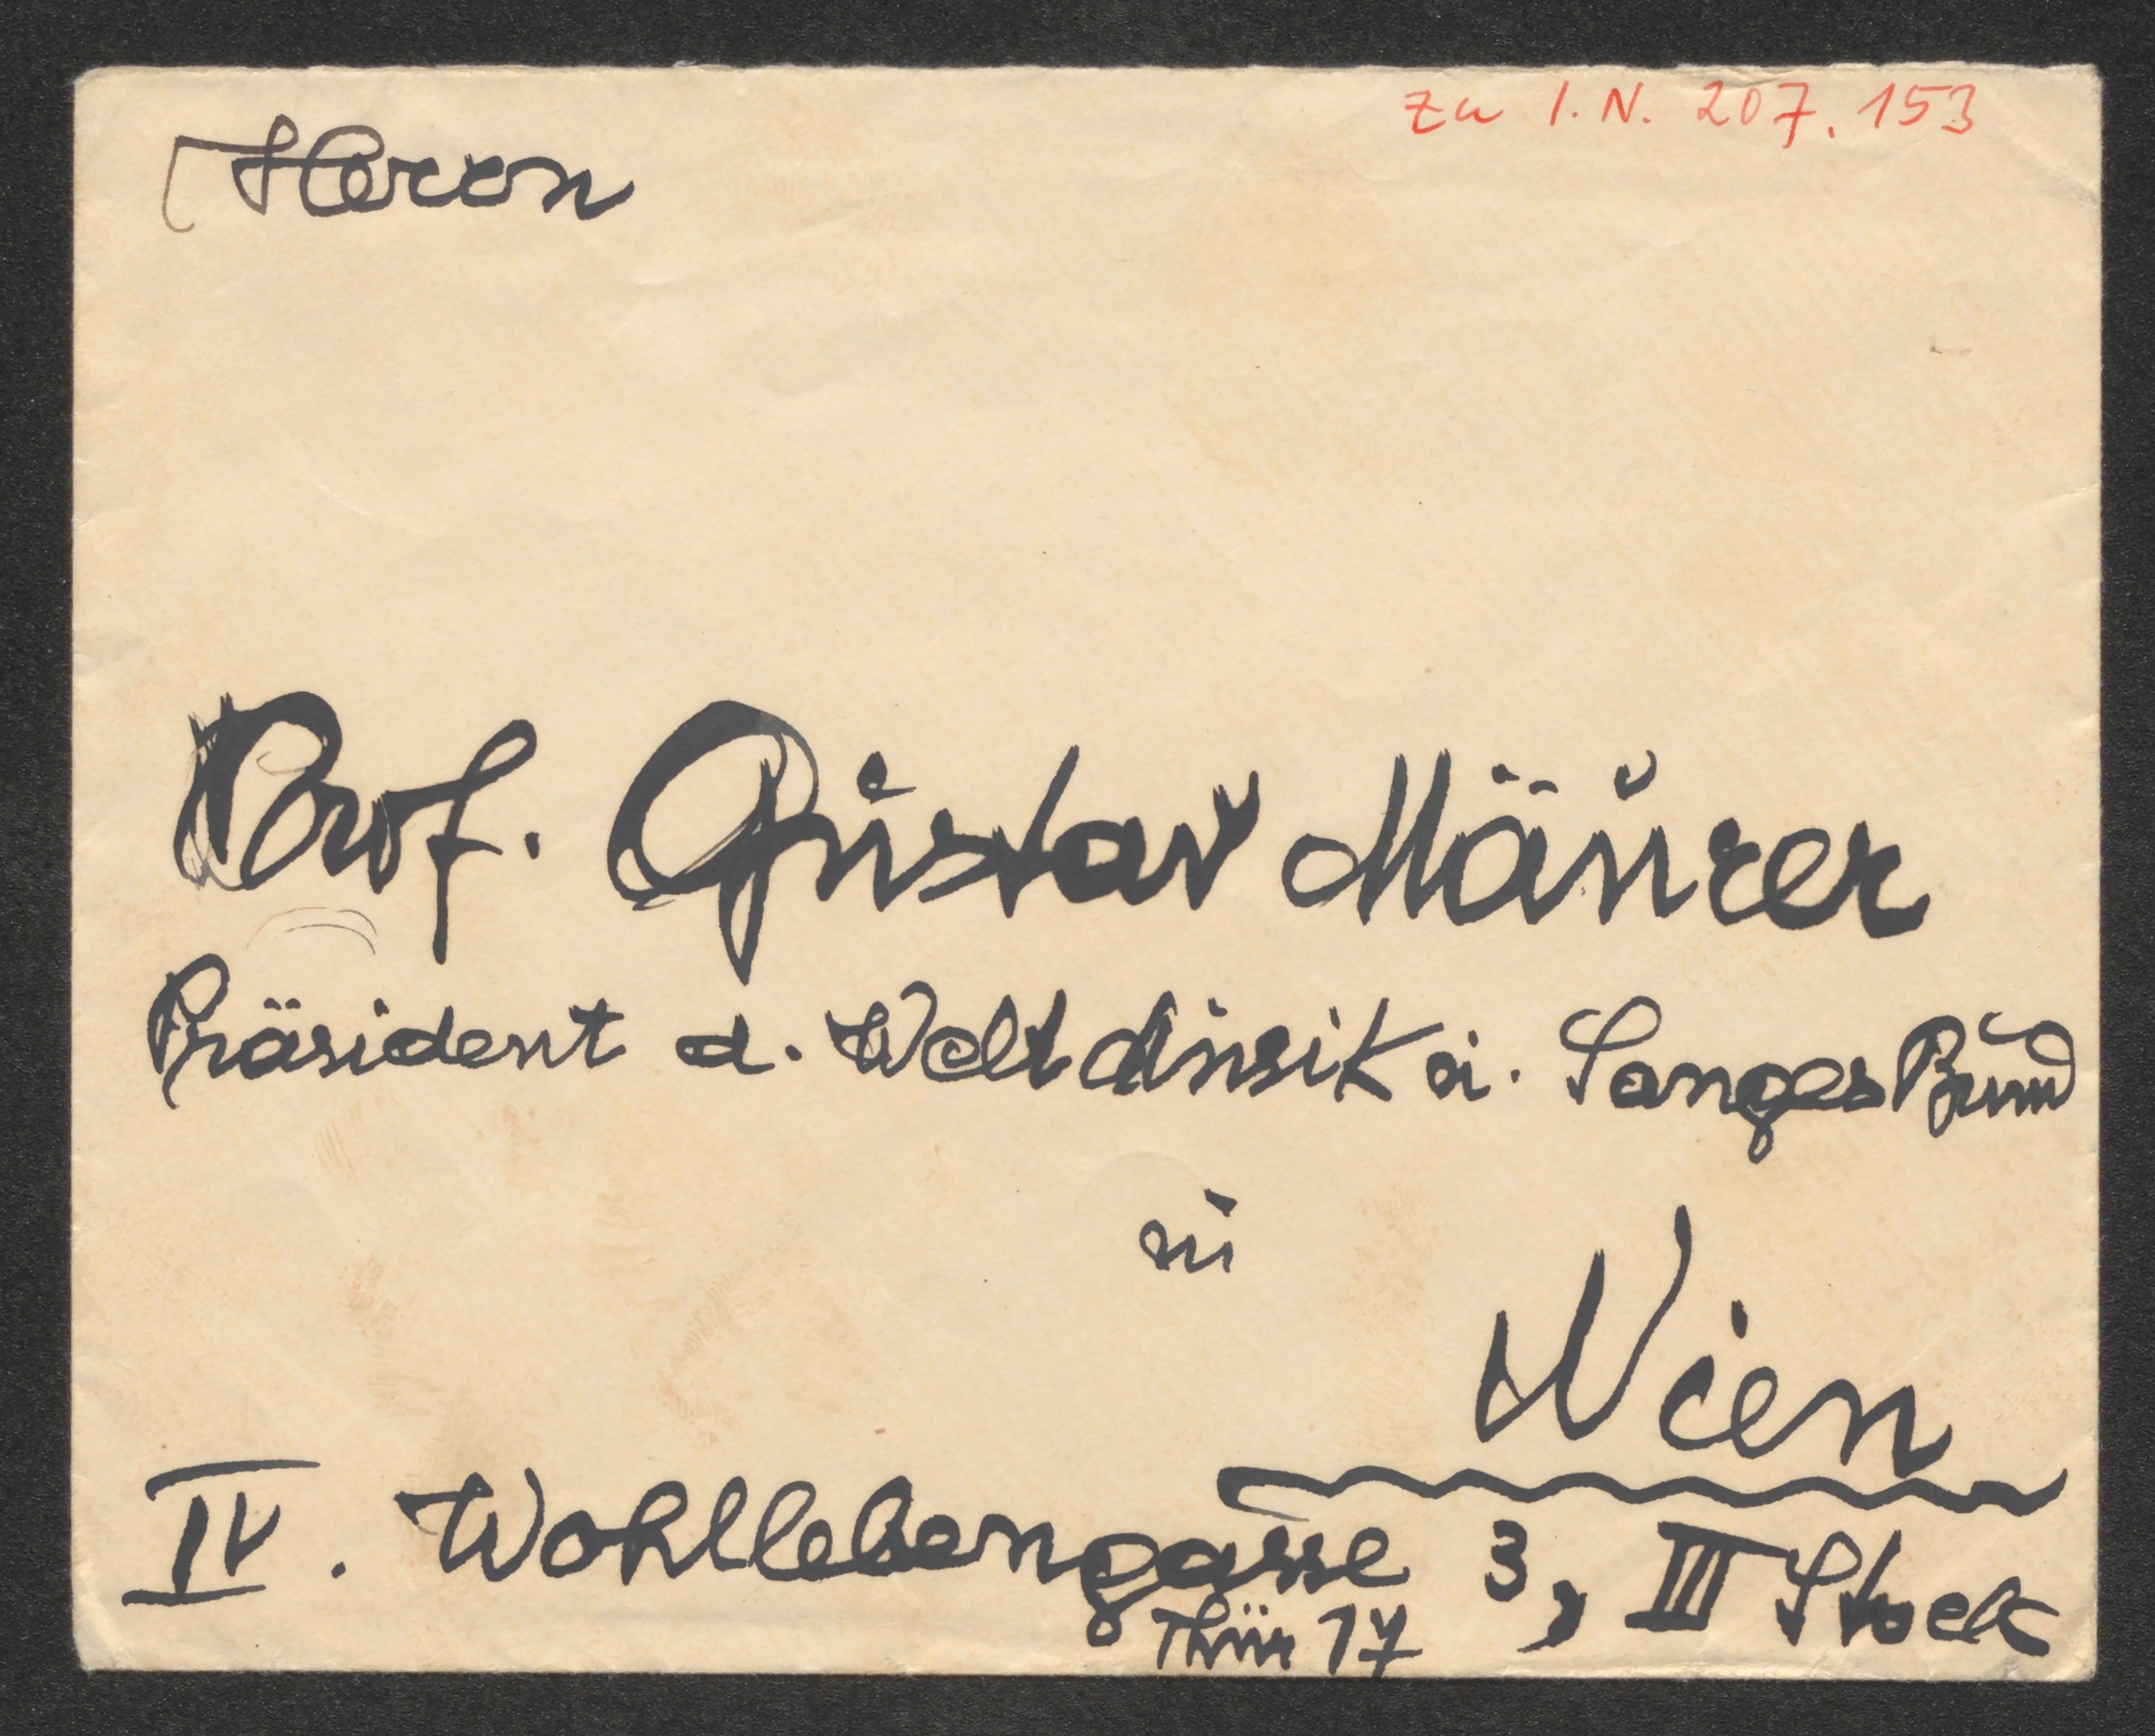 zu I.N. 207.153
Herrn
Prof. Gustav Mäurer
Präsident d. Welt Musik u. Sanges Bund
in
Wien
IV. Wohllebengasse 3, III Stock
Thür 17